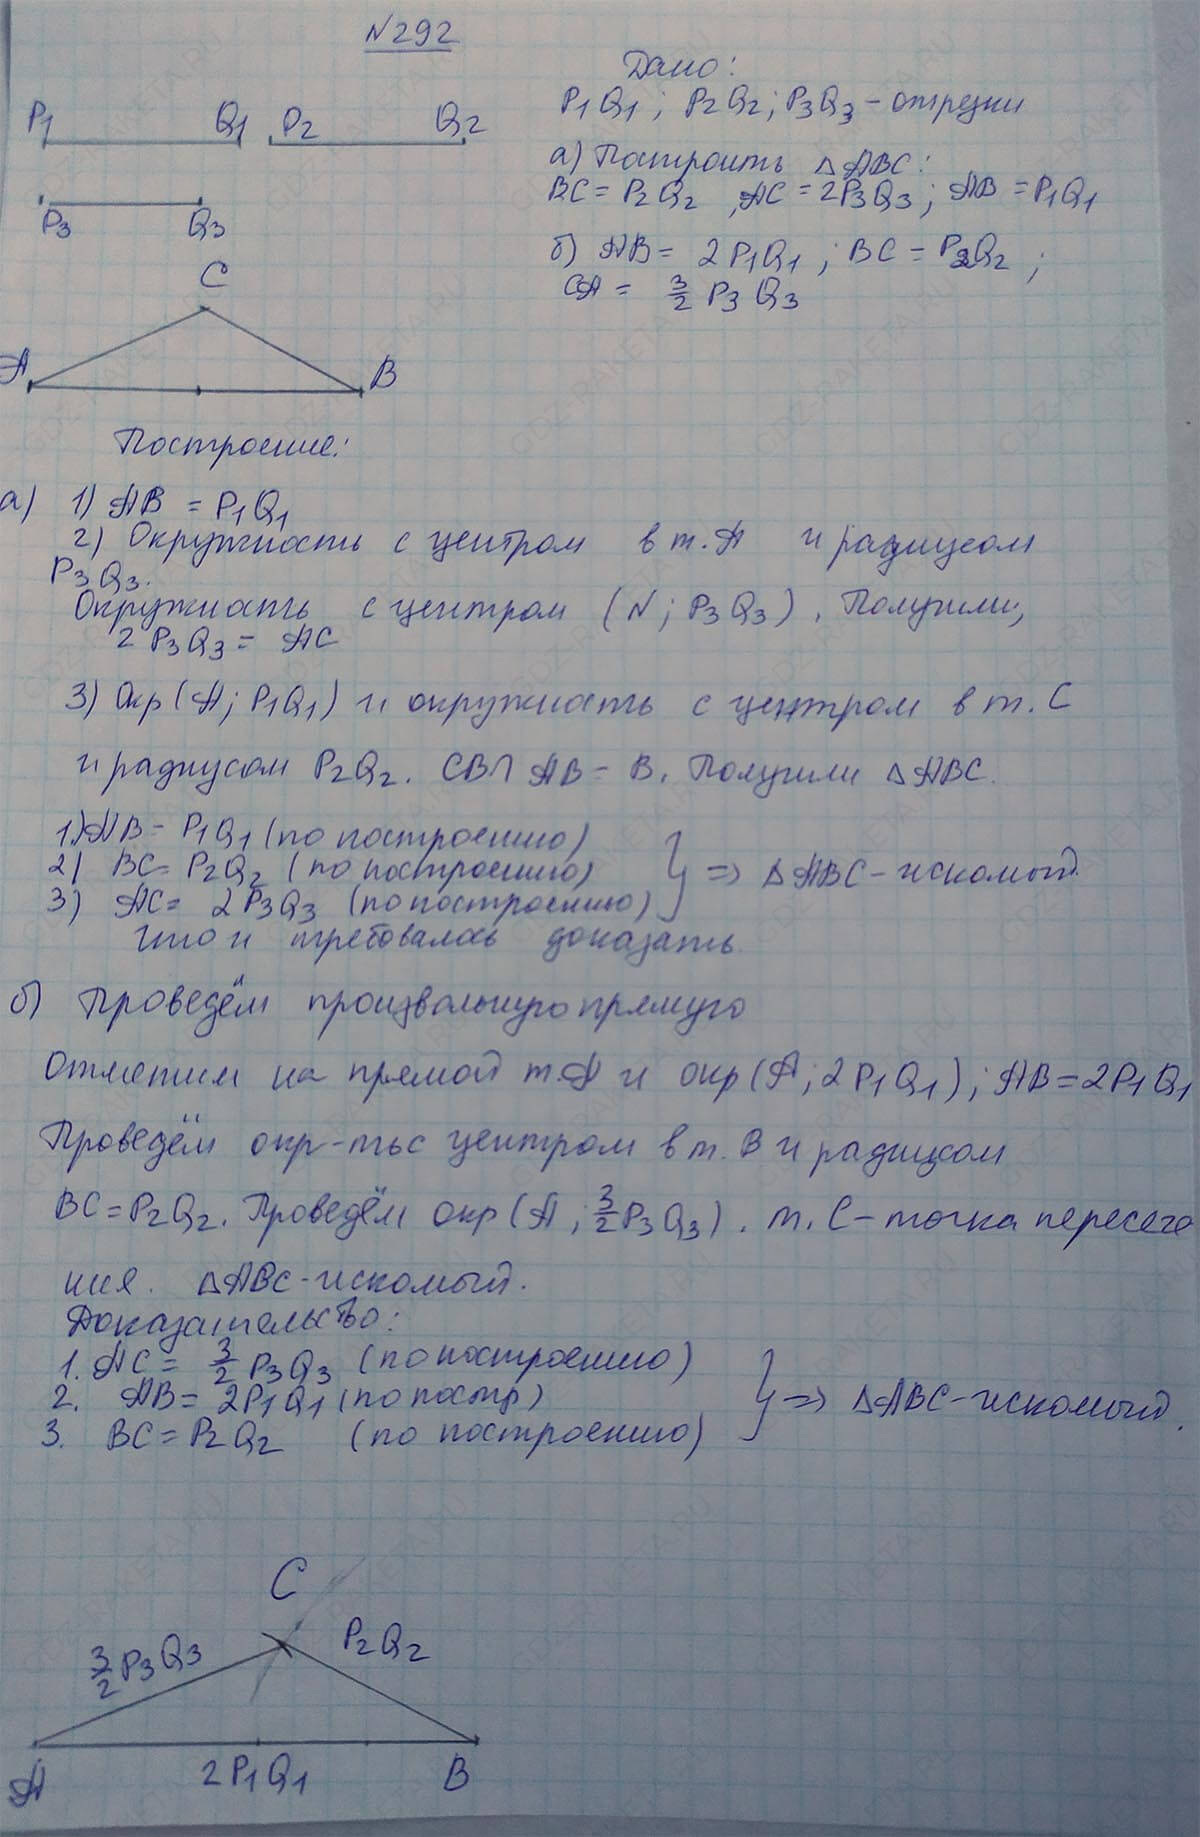 №292
Дано:
P1Q1; P2Q2; P3Q3 – отрезки
а) Построить △ABC:
BC = P2Q2, AC = 2P3Q3; AB = P1Q1
б) AB = 2P1Q1; BC = P2Q2;
CA = 3/2 P3Q3
P1 Q1 P2 Q2
P3 Q3
C
A B
Построение:
а) 1) AB = P1Q1
2) Окружность с центром в т. A и радиусом
P3Q3.
Окружность с центром (N; P3Q3). Получили,
2P3Q3 = AC
3) Окр(A; P1Q1) и окружность с центром в т. C
и радиусом P2Q2. CB∩AB = B. Получили △ABC.
1) AB = P1Q1 (по построению)
2) BC = P2Q2 (по построению) } => △ABC – искомый.
3) AC = 2P3Q3 (по построению)
что и требовалось доказать.
б) Проведём произвольную прямую
Отметим на прямой т. A и окр(A; 2P1Q1); AB = 2P1Q1
Проведём окр-ть с центром в т. B и радиусом
BC = P2Q2. Проведём окр(A; 3/2 P3Q3). т. C – точка пересече
ния. △ABC – искомый.
Доказательство:
1. AC = 3/2 P3Q3 (по построению)
2. AB = 2P1Q1 (по постр) } => △ABC – искомый.
3. BC = P2Q2 (по построению)
C
3/2 P3Q3 P2Q2
A 2P1Q1 B